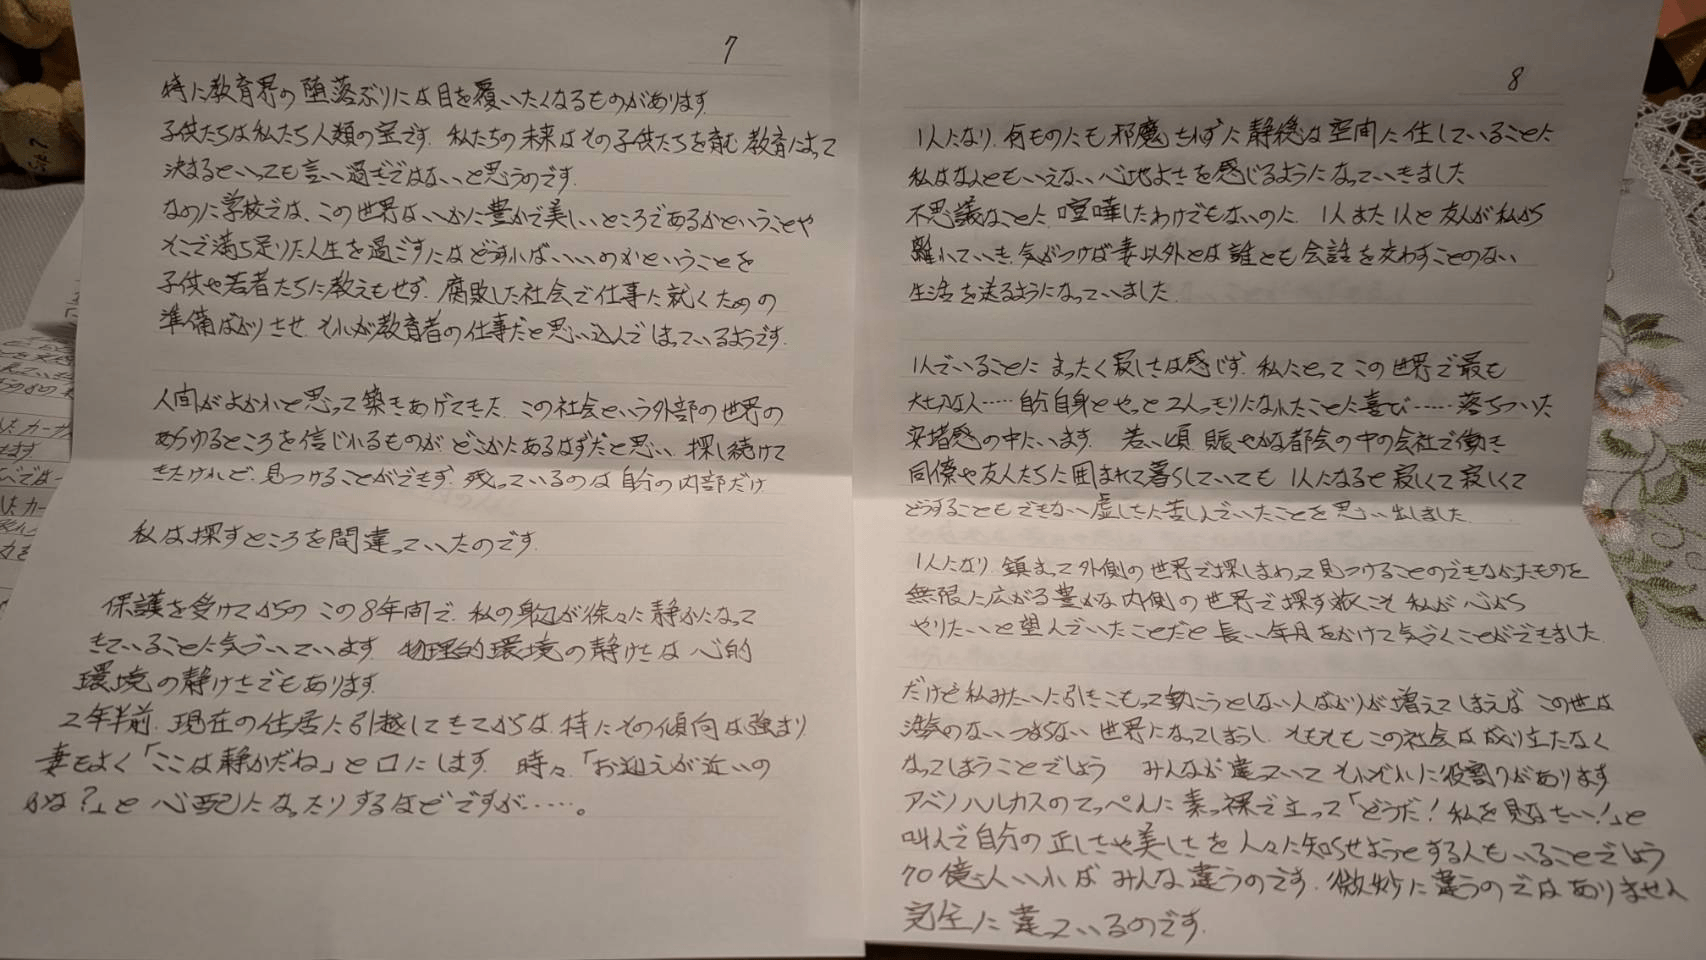 7
特に教育界の堕落ぶりには目を覆いたくなるものがあります。
子供たちは私たち人類の宝です。私たちの未来はその子供たちを育む教育によって
決まるといっても言い過ぎではないと思うのです。
なのに学校では、この世界はいかに豊かで美しいところであるかということや
そこで満ち足りた人生を過ごすにはどうすればいいのかということを
子供や若者たちに教えもせず、腐敗した社会で仕事に就くための
準備ばかりさせ それが教育者の仕事だと思い込んでしまっているようです。
人間がよかれと思って築きあげてきた この社会という外部の世界の
あらゆるところを信じれるものが どこかにあるはずだと思い、探し続けて
きたけれど、見つけることができず、残っているのは自分の内部だけ
私は探すところを間違っていたのです。
保護を受けてからの この8年間で、私の身辺が徐々に静かになって
きていることに気づいています 物理的環境の静けさは心的
環境の静けさでもあります。
2年半前、現在の住居に引越してきてからは、特にその傾向は強まり
妻もよく「ここは静かだね」と口にします 時々「お迎えが近いの
かな?」と 心配になったりするほどですが……。
8
1人になり、何ものにも邪魔されずに静穏な空間に住していることに
私はなんともいえない心地よさを感じるようになっていきました
不思議なことに、喧嘩したわけでもないのに、1人また1人と友人が私から
離れていき、気がつけば妻以外とは誰とも会話を交わすことのない
生活を送るようになっていました。
1人でいることに まったく寂しさは感じず、私にとってこの世界で最も
大切な人……自分自身とやっと2人っきりになれたことに喜び……落ちついた
安堵感の中にいます 若い頃 賑やかな都会の中の会社で働き
同僚や友人たちに囲まれて暮らしていても 1人になると寂しくて寂しくて
どうすることもできない虚しさに苦しんでいたことを思い出しました。
1人になり、鎮まって外側の世界で探しまわって見つけることのできなかったものを
無限に広がる豊かな内側の世界で探す旅こそ 私が心から
やりたいと望んでいたことだと 長い年月をかけて気づくことができました。
だけど私みたいに引きこもって動こうとしない人ばかりが増えてしまえば この世は
活気のないつまらない世界になってしまうし、そもそもこの社会は成り立たなく
なってしまうことでしょう みんなが違っていて それぞれに役割りがあります
アベノハルカスのてっぺんに素っ裸で立って「どうだ!私を見なさい!」と
叫んで自分の正しさや美しさを人々に知らせようとする人もいることでしょう
70億人いれば みんな違うのです。微妙に違うのではありません
完全に違っているのです。